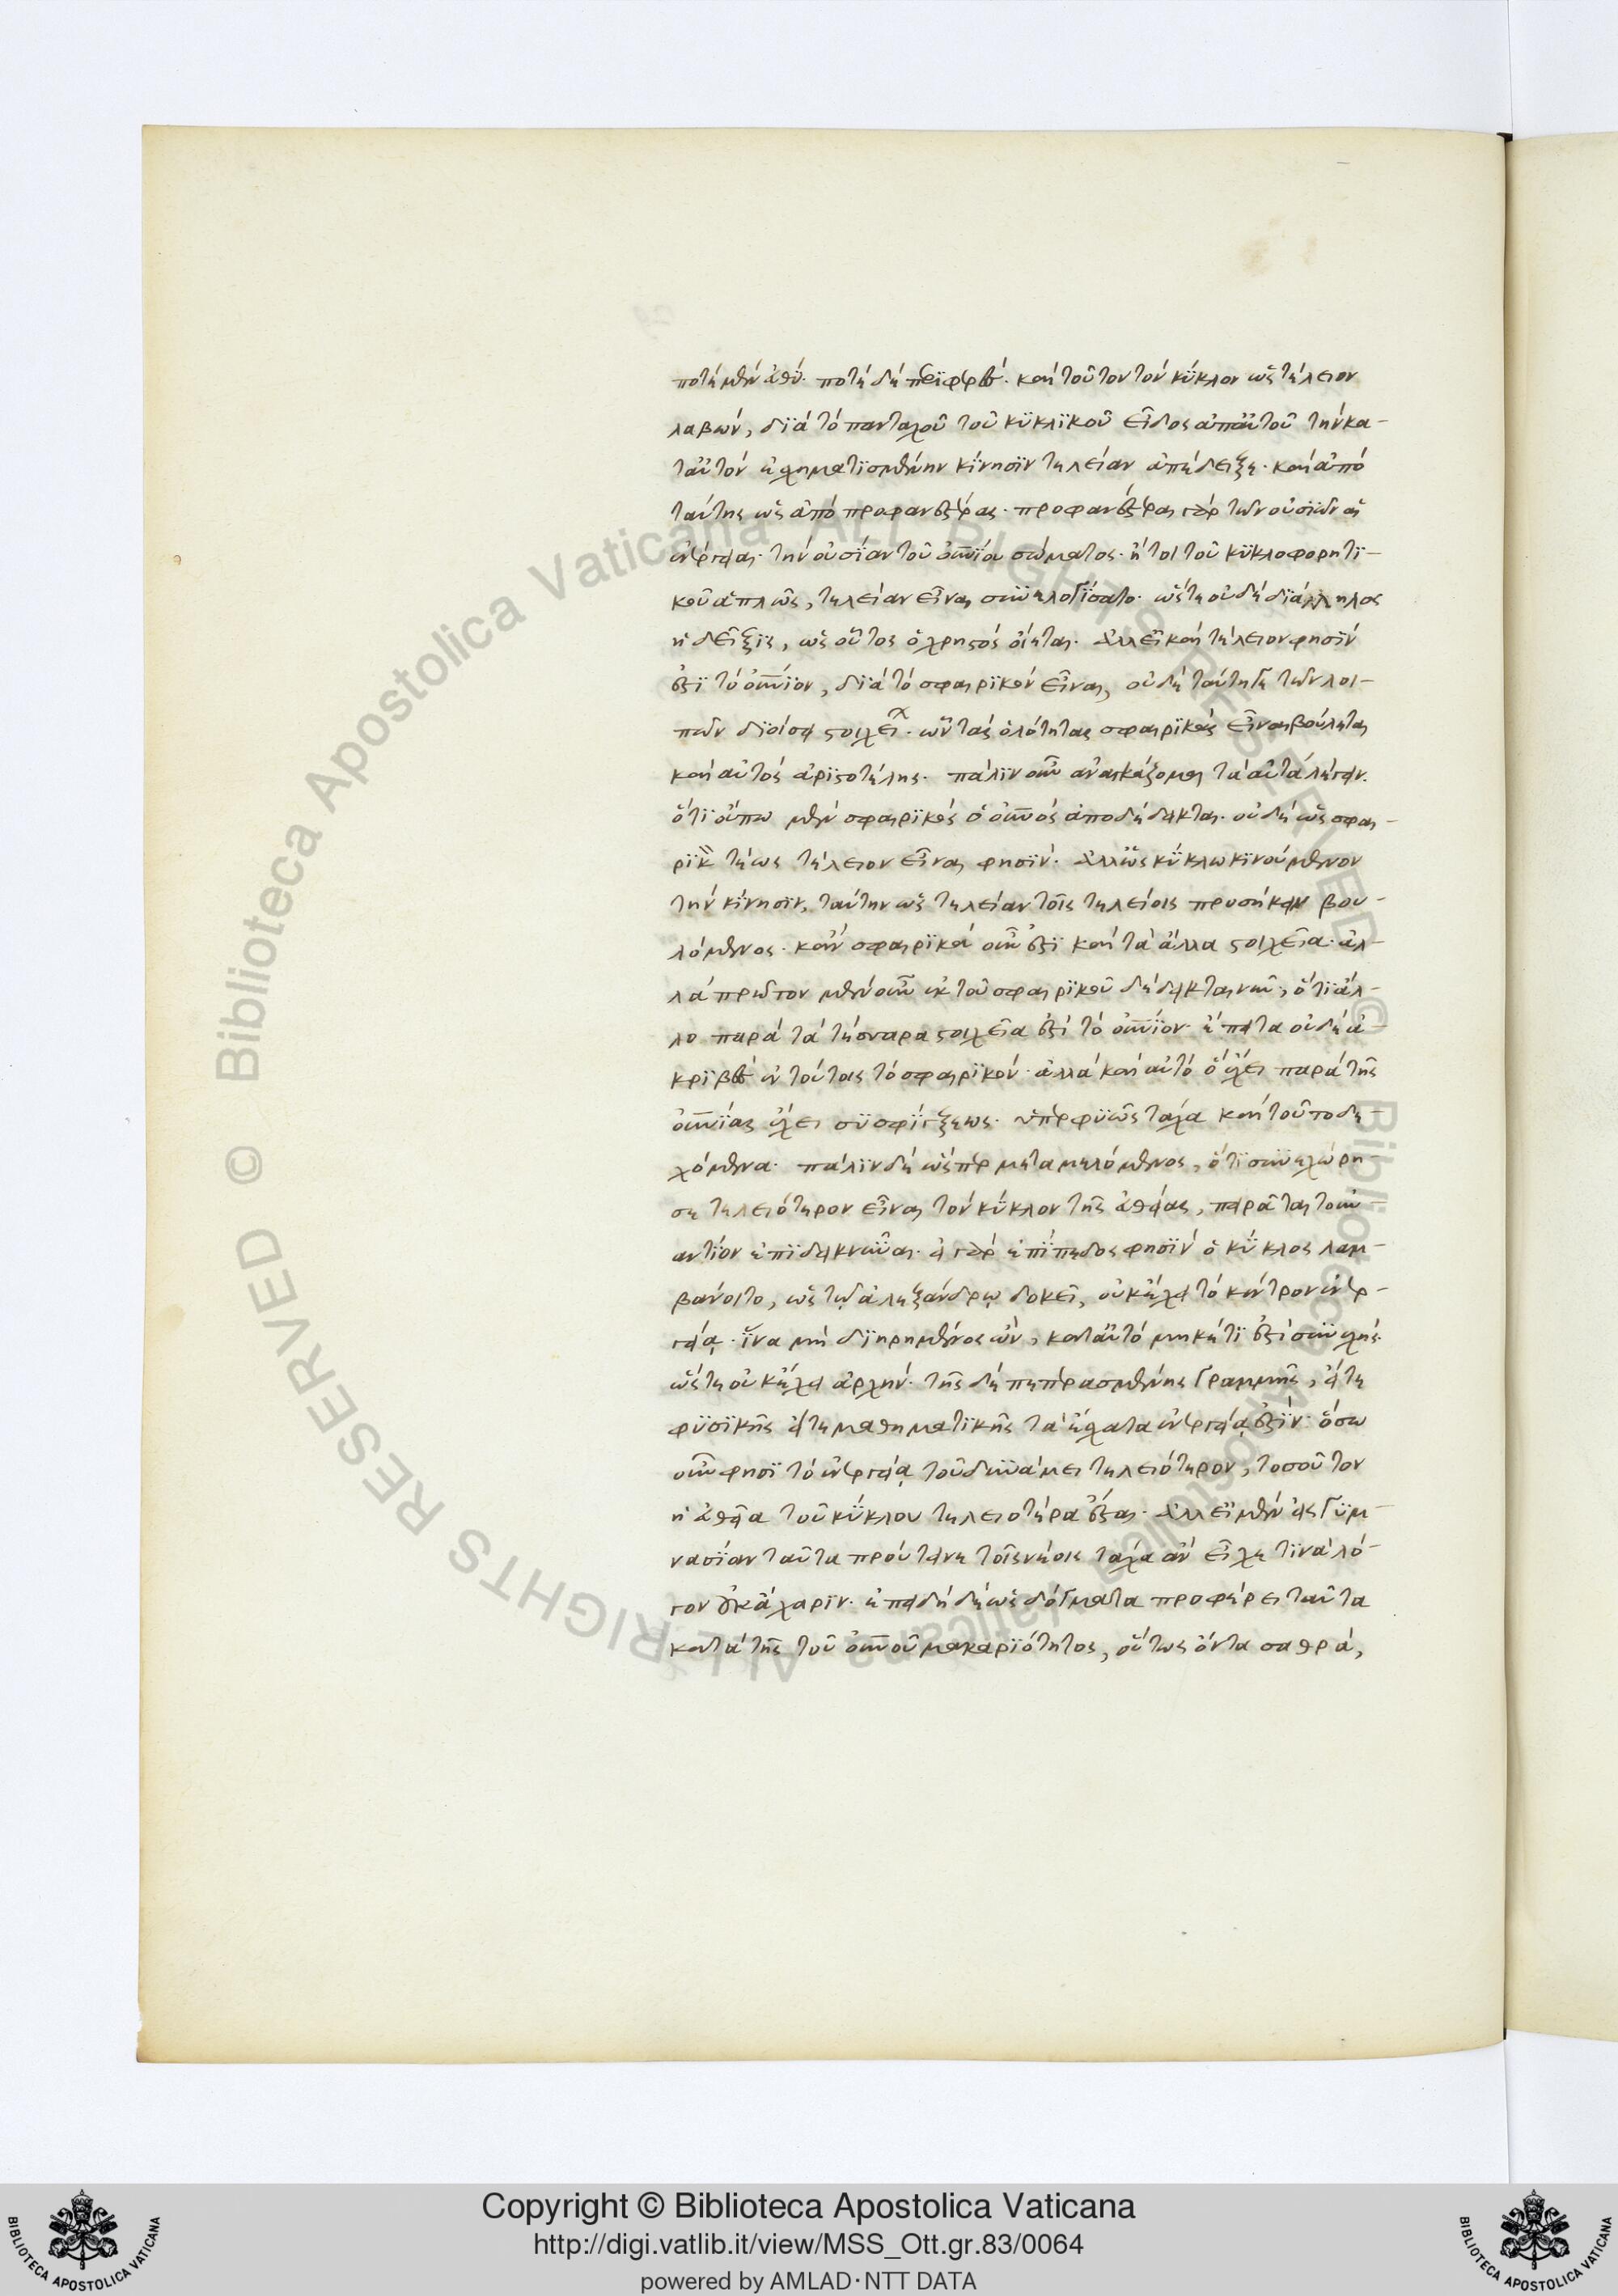 ποτὲ μὲν εὐθύ. ποτὲ δὲ περιφερές. καὶ τοῦτον τὸν κύκλον ὡς τέλειον
λαβὼν, διὰ τὸ πανταχοῦ τοῦ κυκλικοῦ εἶδος ἀπ' αὐτοῦ τὴν κα-
τ' αὐτὸν ἐσχηματισμένην κίνησιν τελείαν ἀπέδειξε. καὶ ἀπὸ
ταύτης ὡς ἀπὸ προφανεστέρας. προφανέστεραι γὰρ τῶν οὐσιῶν αἱ
ἐνέργειαι. τὴν οὐσίαν τοῦ οὐνίου σώματος. ἤτοι τοῦ κυκλοφορητι-
κοῦ ἁπλῶς, τελείαν εἶναι συνελογίσατο. ὥστε οὐδὲ διάλληλος
ἡ δεῖξις, ὡς οὗτος ὁ χρηστὸς οἴεται. ἀλλ' εἰ καὶ τέλειον φησὶν
ἐστι τὸ οὐνιον, διὰ τὸ σφαιρικὸν εἶναι, οὐδὲ ταύτῃ γε τῶν λοι-
πῶν διοίσει στοιχείων. ὧν τὰς ὁλότητας σφαιρικὰς εἶναι βούλεται
καὶ αὐτὸς ἀριστοτέλης. πάλιν οὖν ἀναγκάζομαι τὰ αὐτὰ λέγειν.
ὅτι οὔπω μὲν σφαιρικὸς ὁ οὐνος ἀποδέδεικται. οὐδὲ ὡς σφαι-
ρικὸν τέως τέλειον εἶναι φησίν. ἀλλ' ὡς κύκλω κινούμενον
τὴν κίνησιν, ταύτην ὡς τελείαν τοῖς τελείοις προσήκειν βου-
λόμενος. κἂν σφαιρικὰ οὖν ἐστι καὶ τὰ ἄλλα στοιχεῖα. ἀλ-
λὰ πρῶτον μὲν οὖν ἐκ τοῦ σφαιρικοῦ δέδεικται νῦν, ὅτι ἄλ-
λο παρὰ τὰ τέσσαρα στοιχεῖα ἐστὶ τὸ οὐνιον. ἔπειτα οὐδὲ ἀ-
κριβὲς ἐν τούτοις τὸ σφαιρικόν. ἀλλὰ καὶ αὐτὸ ὃ ἔχει παρὰ τῆς
οὐνίας ἔχει συσφίγξεως. ὑπερφυῶς τάχα καὶ τοῦτο δε-
χόμενα. πάλιν δὲ ὥσπερ μεταμελόμενος, ὅτι συνεχώρη-
σε τελειότερον εἶναι τὸν κύκλον τῆς εὐθείας, πειρᾶται τοὐν-
αντίον ἐπιδεικνύναι. εἰ γὰρ ἐπίπεδος φησὶν ὁ κύκλος λαμ-
βάνοιτο, ὡς τῷ ἀλεξάνδρῳ δοκεῖ, οὐκ ἔχει τὸ κέντρον ἐνερ-
γείᾳ. ἵνα μὴ διῃρημένος ὢν, κατ' αὐτὸ μηκέτι ἐστὶ συνεχής.
ὥστε οὐκ ἔχει ἀρχήν. τῆς δὲ πεπερασμένης γραμμῆς, εἴτε
φυσικῆς εἴτε μαθηματικῆς τὰ ἔσχατα ἐνεργείᾳ ἐστίν. ὅσω
οὖν φησὶ τὸ ἐνεργείᾳ τοῦ δυνάμει τελειότερον, τοσοῦτον
ἡ εὐθεῖα τοῦ κύκλου τελειοτέρα ἔσται. ἀλλ' εἰ μὲν εἰς γυμ-
νασίαν ταῦτα προύτεινε τοῖς νέοις τάχα ἂν εἶχέ τινα λό-
γον οὐκ ἄχαριν. ἐπειδὴ δὲ ὡς δόγματα προφέρει ταῦτα
κατὰ τῆς τοῦ οὐνοῦ μακαριότητος, οὕτως ὄντα σαθρὰ,
Copyright © Biblioteca Apostolica Vaticana
http://digi.vatlib.it/view/MSS_Ott.gr.83/0064
powered by AMLAD·NTT DATA